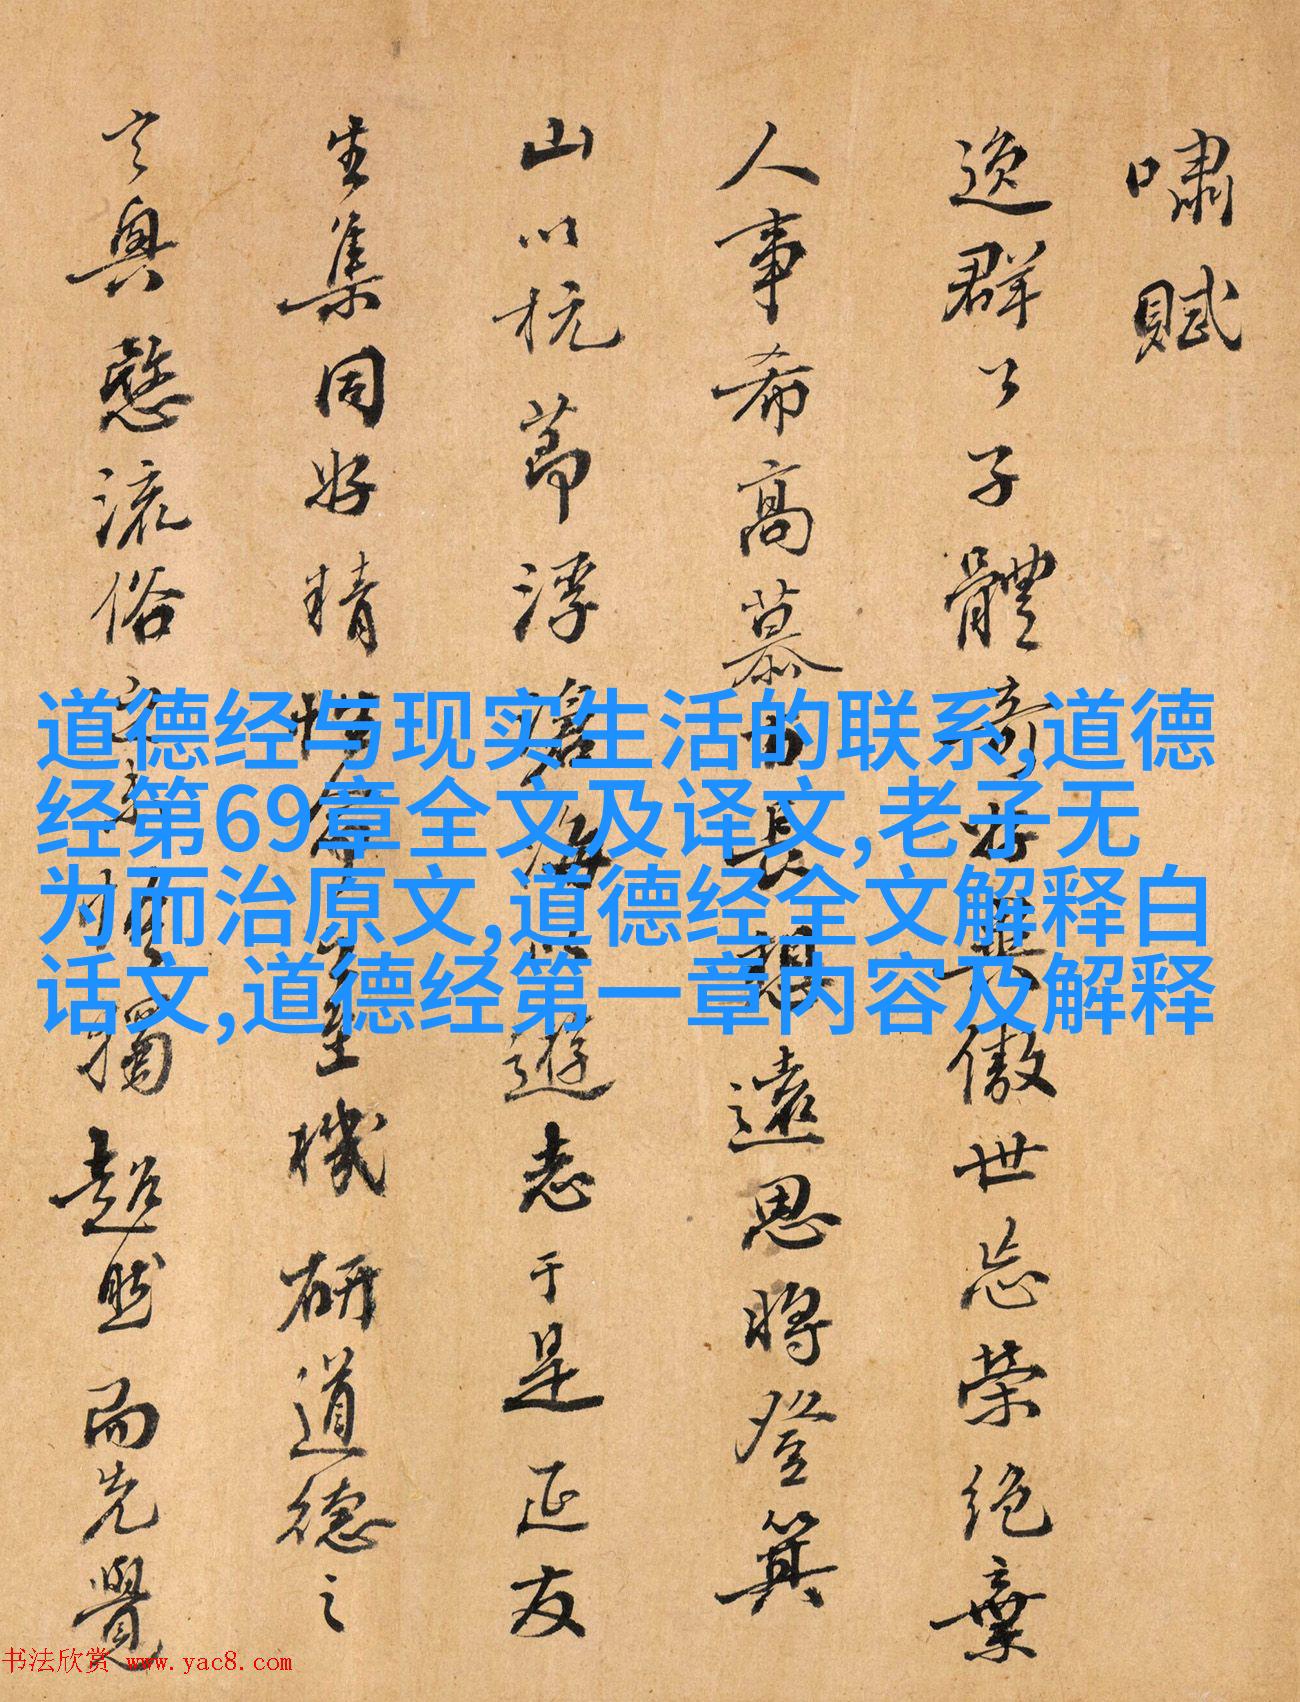 嘯賦
逸群公子體奇好異傲世忘榮絕棄
人事希高慕古長想遠思將登箕
山以抗節浮滄海以遊志于是延友
生集同好精性命之至機研道德之
玄奧愍流俗之未悟獨超然而先覺
道德经与现实生活的联系,道德
经第69章全文及译文,老子无
为而治原文,道德经全文解释白
话文,道德经第一章内容及解释
书法欣赏 www.yac8.com